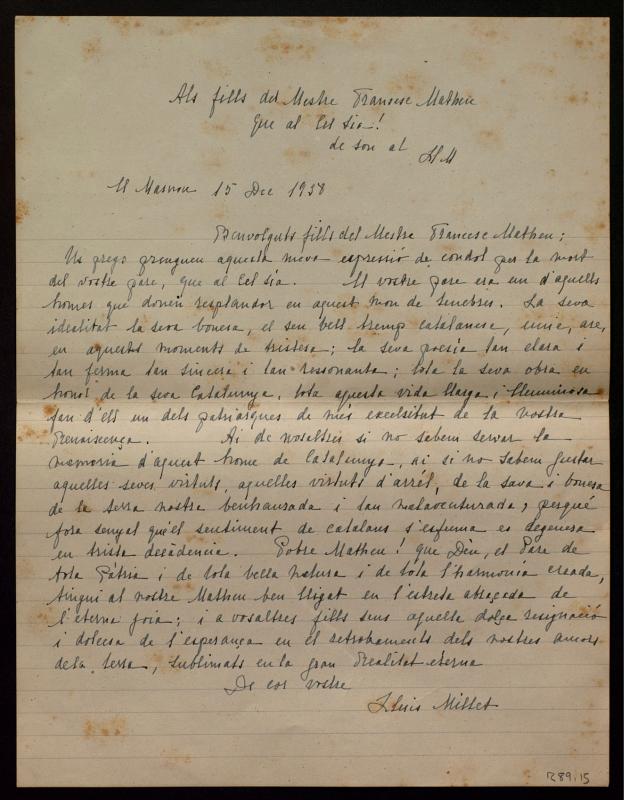 Als fills del Mestre Francesc Matheu
que al Cel sia!
de son at LlM
El Masnou 15 Dec 1938
Benvolguts fills del Mestre Francesc Matheu;
Us prego prenguen aquesta meva expressió de condol per la mort
del vostre pare, que al Cel sia. El vostre pare era un d'aquells
homes que donen resplandor en aquest mon de tenebres. La seva
idealitat la seva bonesa, el seu bell tremp catalanesc, unic, are,
en aquests moments de tristesa; la seva poesía tan clara i
tan ferma tan sincera i tan ressonanta; tota la seva obra en
honor de la seva Catalunya, tota aquesta vida llarga i lluminosa
fan d'ell un dels patriarques de més excelsitut de la nostra
Renaixença. Ai de nosaltres si no sabem servar la
memoria d'aquest home de Catalunya, ai si no sabem gustar
aquelles seves virtuts, aquelles virtuts d'arrel, de la sava i bonesa
de la terra nostre benhaurada i tan malaventurada; perqué
fora senyal qu'el sentiment de catalans s'esfuma es degenera
en trista decàdencia. Pobre Matheu! que Déu, el Pare de
tota Pàtria i de tota bella natura i de tota l'harmonía creada,
tingui al nostre Matheu ben lligat en l'estreta abraçada de
l'eterna joia; i a vosaltres fills seus aquella dolça resignació
i dolcesa de l'esperança en el retrobaments dels nostres amors
de la terra, sublimats en la gran Realitat eterna
De cor vostre
Lluis Millet
R89,15